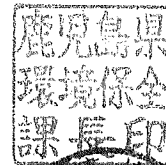 鹿児島県
環境保全
課長印